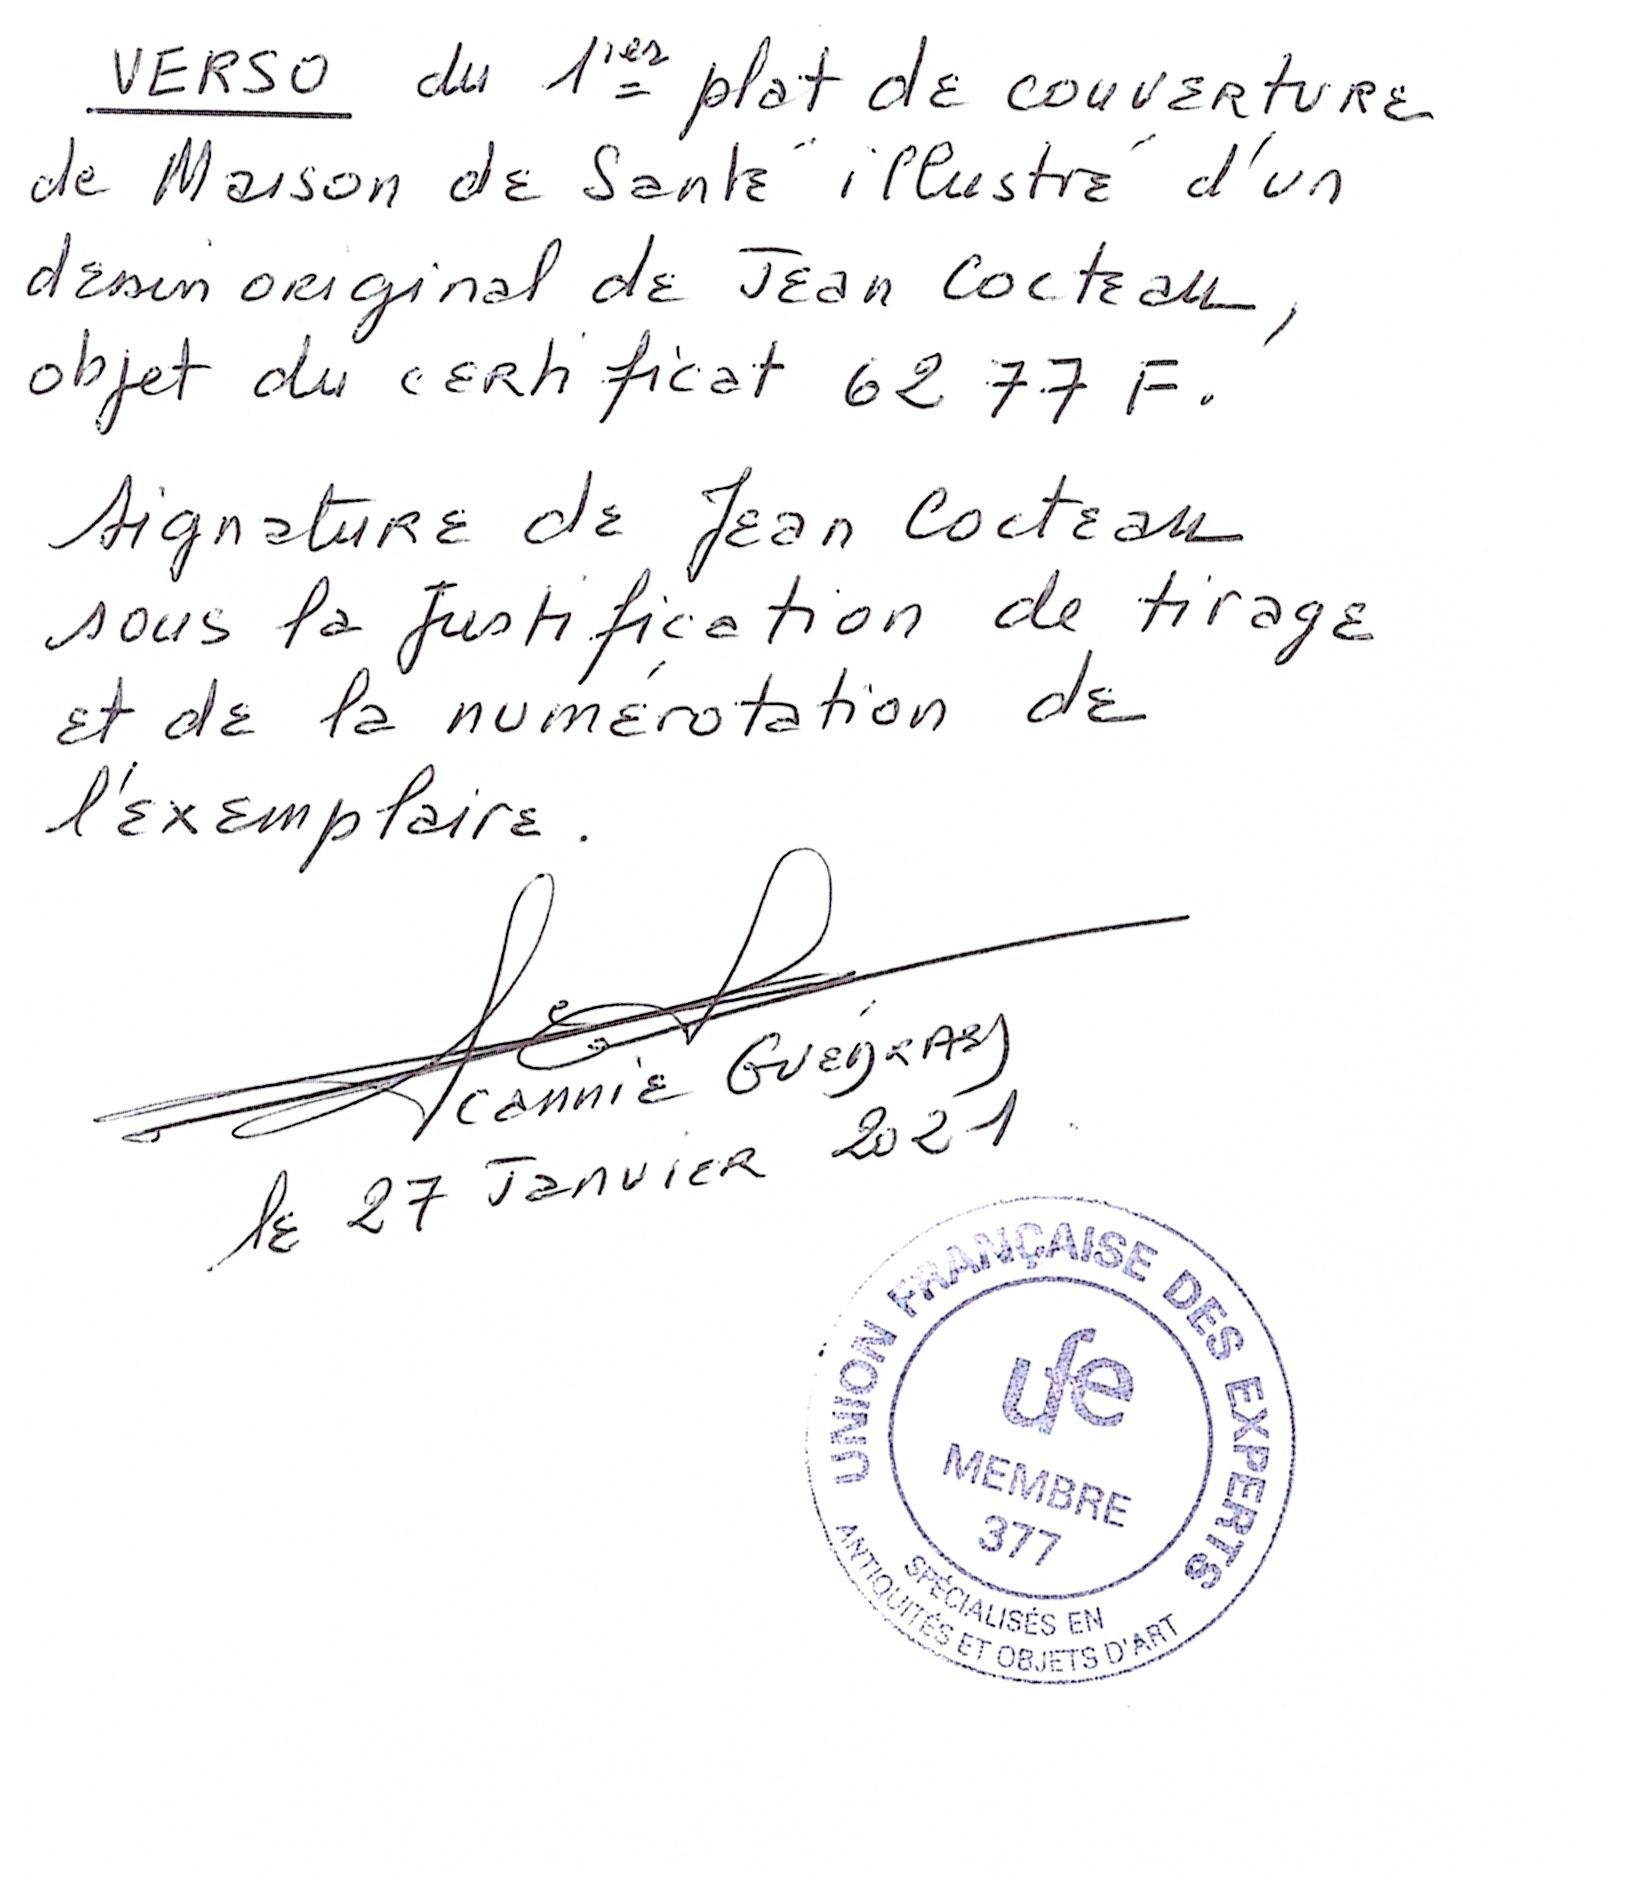 VERSO du 1ier plat de couverture
de Maison de Santé illustré d'un
dessin original de Jean Cocteau,
objet du certificat 6277 F.
Signature de Jean Cocteau
sous la justification de tirage
et de la numérotation de
l'exemplaire.
Annie Guédras
le 27 Janvier 2021
UNION FRANÇAISE DES EXPERTS
ufe
MEMBRE
377
SPÉCIALISÉS EN
ANTIQUITÉS ET OBJETS D'ART